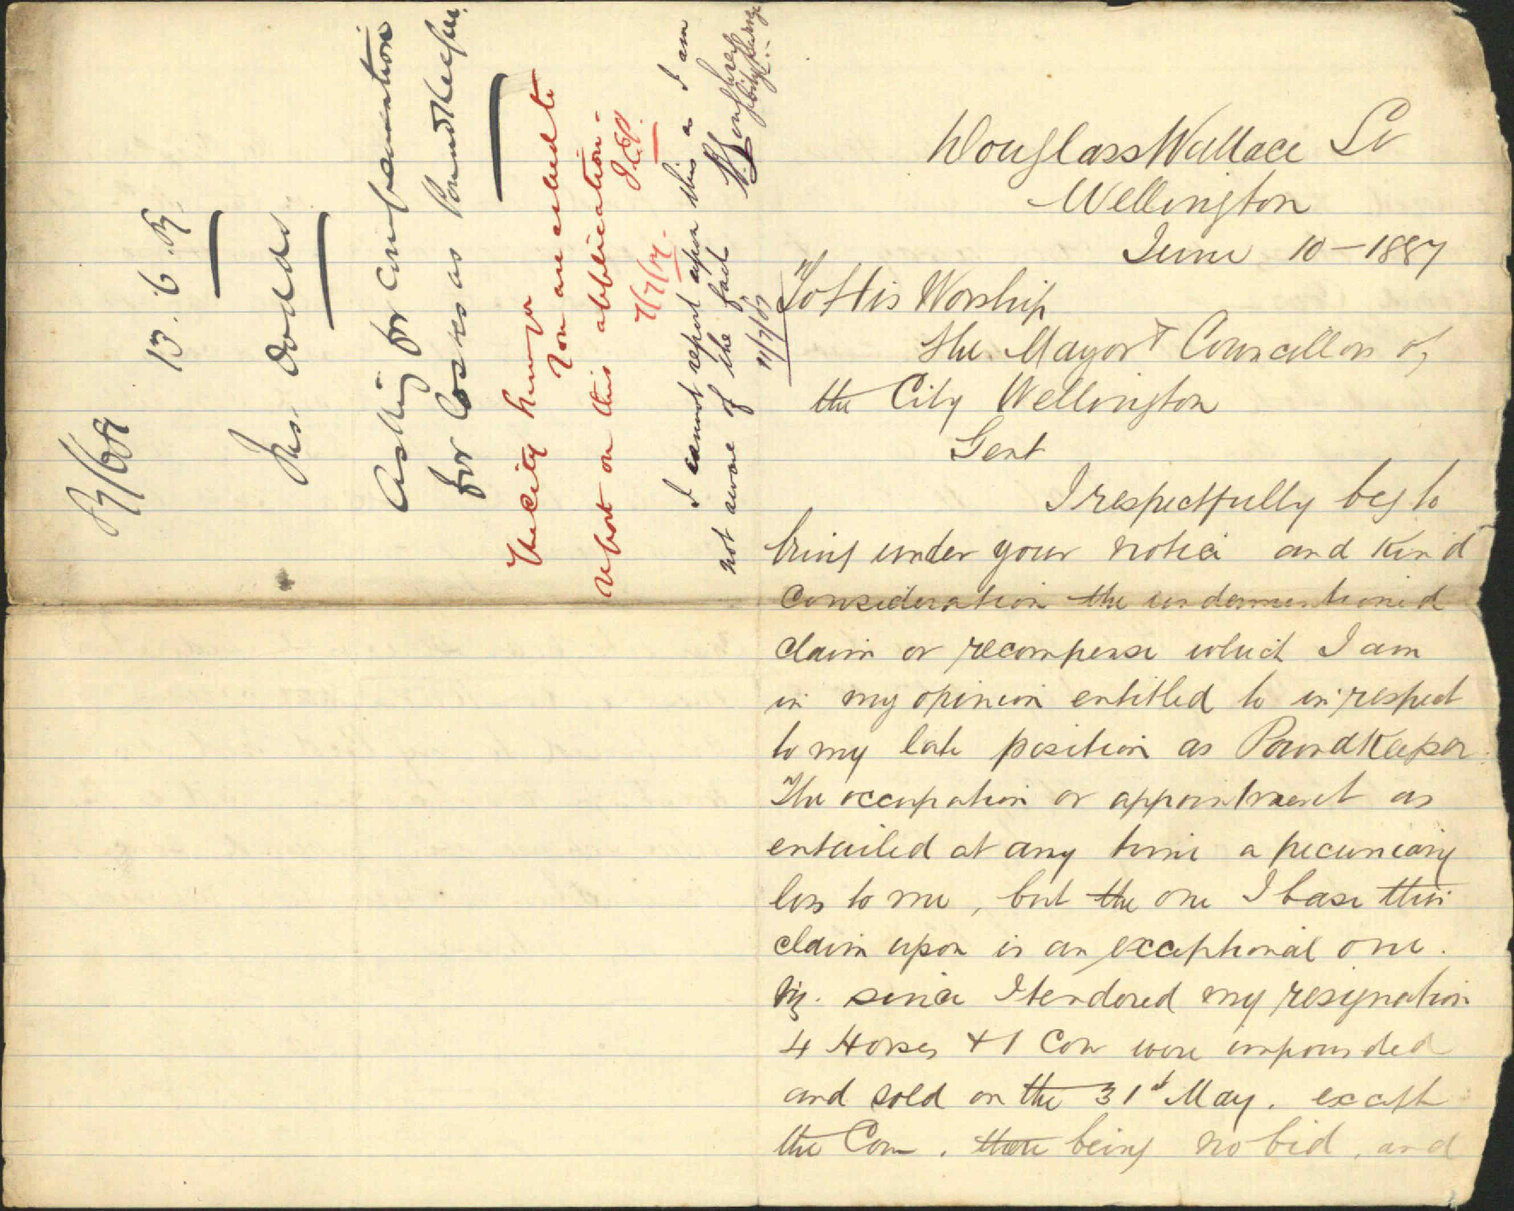 87/608
13.6.87
Jas Dodds
Asking for compensation
for losses as Poundkeeper
The City Surveyor
You are asked to
report on this application.
7/7/87.
I cannot report upon this as I am
not aware of the fact
11/7/87
Douglass Wallace St
Wellington
June 10 - 1887
To His Worship
the Mayor & Councillors of
the City Wellington
Gent
I respectfully beg to
bring under your notice and kind
consideration the undermentioned
claim or recompense which I am
in my opinion entitled to in respect
to my late position as PoundKeeper.
The occupation or appointment as
entailed at any time a pecuniary
loss to me, but the one I base this
claim upon is an exceptional one.
Viz. since I tendered my resignation
4 Horses & 1 Cow were impounded
and sold on the 31st May. except
the Cow. there being no bid, and